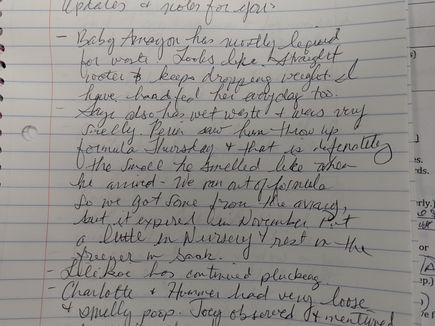 Updates & notes for you:
- Baby Amazon has mostly liquid
for waste. Looks like straight
water & keeps dropping weight. I
have handfed her everyday too.
- Sage also has wet waste & was very
smelly. Penn saw him throw up
formula Thursday & that is definately
the smell he smelled like when
he arrived - We ran out of formula
so we got some from the aviary,
but it expired in November. Put
a little in Nursery & rest in the
freezer in Sank.
- Lilikoi has continued plucking.
- Charlotte & Hummer had very loose
& smelly poop. Joey observed & mentioned